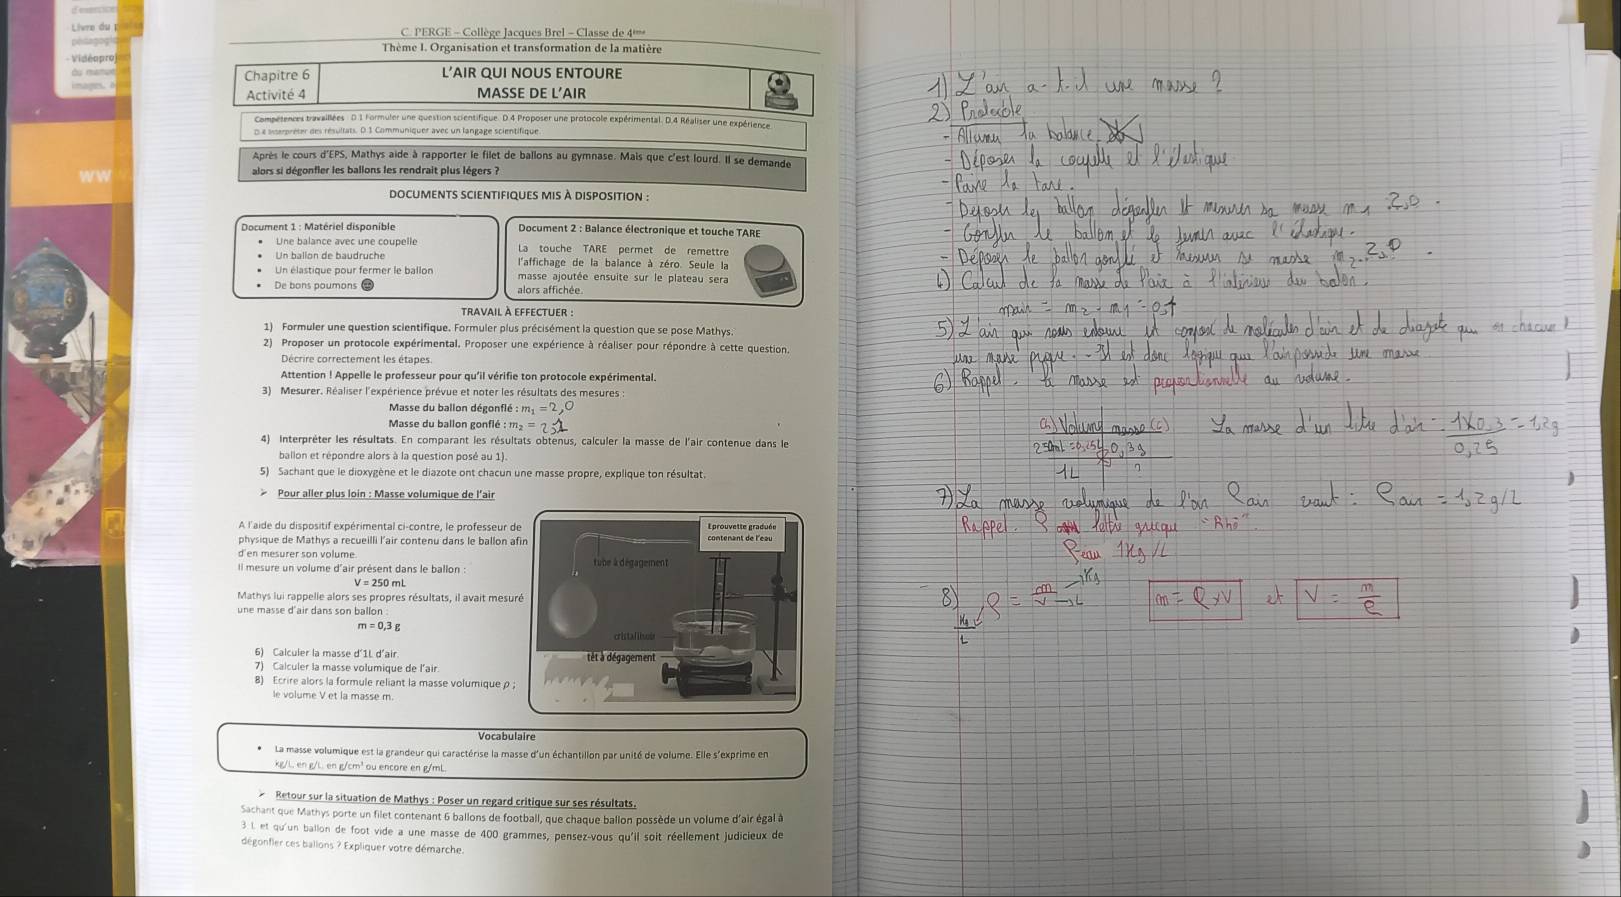 d'exercices
Livre du
pédagogique
- Vidéoproj
du manuel
images, a
WW
C. PERGE – Collège Jacques Brel – Classe de 4ème
Thème I. Organisation et transformation de la matière
Chapitre 6
Activité 4
L'AIR QUI NOUS ENTOURE
MASSE DE L'AIR
Compétences travaillées : D.1 Formuler une question scientifique. D.4 Proposer une protocole expérimental. D.4 Réaliser une expérience
D.4 Interpréter des résultats. D.1 Communiquer avec un langage scientifique.
Après le cours d'EPS, Mathys aide à rapporter le filet de ballons au gymnase. Mais que c'est lourd. Il se demande
alors si dégonfler les ballons les rendrait plus légers ?
DOCUMENTS SCIENTIFIQUES MIS À DISPOSITION :
Document 1 : Matériel disponible
• Une balance avec une coupelle
• Un ballon de baudruche
• Un élastique pour fermer le ballon
• De bons poumons
Document 2 : Balance électronique et touche TARE
La touche TARE permet de remettre
l'affichage de la balance à zéro. Seule la
masse ajoutée ensuite sur le plateau sera
alors affichée.
TRAVAIL À EFFECTUER :
1) Formuler une question scientifique. Formuler plus précisément la question que se pose Mathys.
2) Proposer un protocole expérimental. Proposer une expérience à réaliser pour répondre à cette question.
Décrire correctement les étapes.
Attention ! Appelle le professeur pour qu'il vérifie ton protocole expérimental.
3) Mesurer. Réaliser l'expérience prévue et noter les résultats des mesures :
Masse du ballon dégonflé : m₁ = 2,0
Masse du ballon gonflé : m₂ =
4) Interpréter les résultats. En comparant les résultats obtenus, calculer la masse de l'air contenue dans le
ballon et répondre alors à la question posé au 1).
5) Sachant que le dioxygène et le diazote ont chacun une masse propre, explique ton résultat.
➢ Pour aller plus loin : Masse volumique de l'air
A l'aide du dispositif expérimental ci-contre, le professeur de
physique de Mathys a recueilli l'air contenu dans le ballon afin
d'en mesurer son volume.
Il mesure un volume d'air présent dans le ballon :
V = 250 mL
Mathys lui rappelle alors ses propres résultats, il avait mesuré
une masse d'air dans son ballon :
m = 0,3 g
6) Calculer la masse d'1L d'air.
7) Calculer la masse volumique de l'air.
8) Ecrire alors la formule reliant la masse volumique ρ ;
le volume V et la masse m.
Eprouvette graduée
contenant de l'eau
tube à dégagement
cristallisoir
têt à dégagement
Vocabulaire
• La masse volumique est la grandeur qui caractérise la masse d'un échantillon par unité de volume. Elle s'exprime en
kg/L, en g/L, en g/cm³ ou encore en g/mL.
➢ Retour sur la situation de Mathys : Poser un regard critique sur ses résultats.
Sachant que Mathys porte un filet contenant 6 ballons de football, que chaque ballon possède un volume d'air égal à
3 L et qu'un ballon de foot vide a une masse de 400 grammes, pensez-vous qu'il soit réellement judicieux de
dégonfler ces ballons ? Expliquer votre démarche.
1) L'air a-t-il une masse ?
2) Protocole
- Allumer la balance
- Déposer la coupelle et l'élastique
- Faire la tare.
- Déposer le ballon dégonfler et mesurer sa masse m1 2,0.
- Gonfler le ballon et le fermer avec l'élastique.
- Déposer le ballon gonflé et mesurer sa masse m2
4) Calcul de la masse de l'air à l'intérieur du ballon.
mair = m2 - m1 =
5) L'air qui nous entoure est composé de molécules d'air et de diazote qui ont chacune
une masse propre. Il est donc logique que l'air possède une masse
6) Rappel. La masse est proportionnelle au volume.
Volume masse
250mL = 0,25L 0,3g
1L ?
La masse d'un litre d'air = 1x0,3 / 0,25 = 1,2g
7) La masse volumique de l'air ρair vaut : ρair = 1,2g/L
Rappel. ρ lettre grecque "Rhô".
ρeau 1Kg/L
8) ρ = m/V → Kg → L
Kg/L
m = ρxV et V = m/ρ